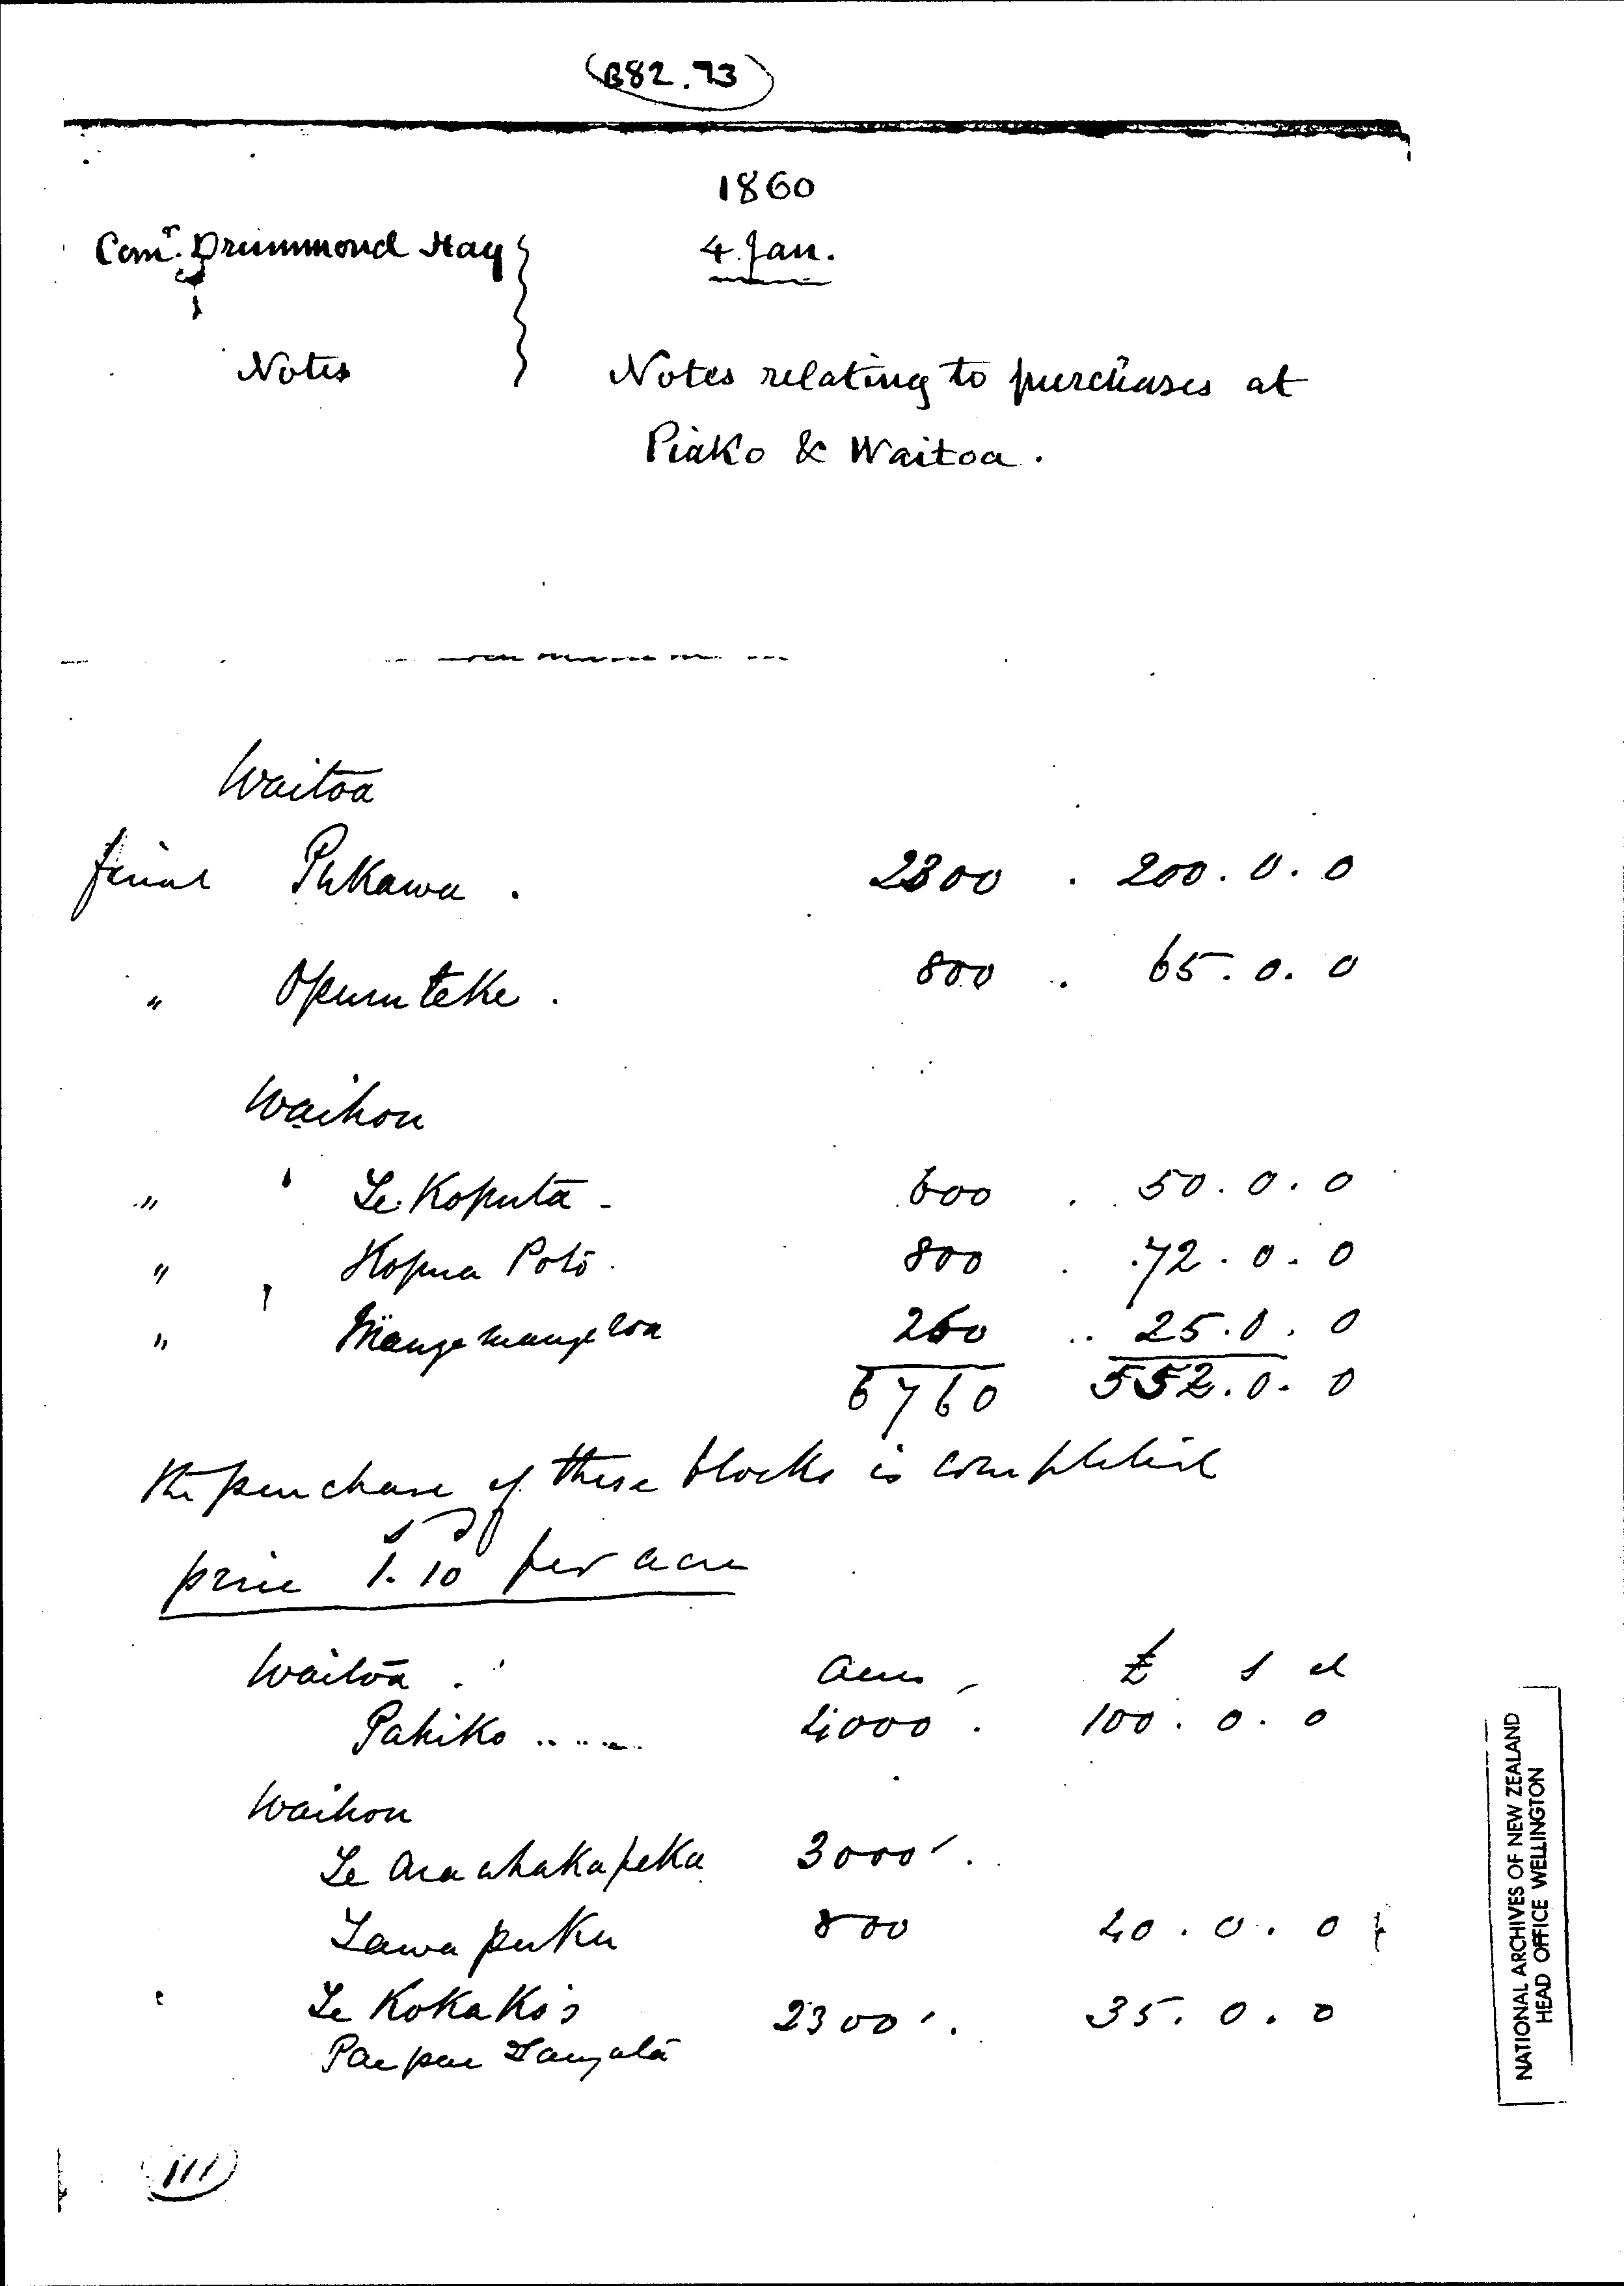 B82.73
1860
Com.r Drummond Hay 4 Jan.
Notes Notes relating to purchases at
Piako & Waitoa.
Waitoa
final Pukawa . 2300 . 200. 0. 0
" Opuruteke . 800 . 65. 0. 0
Waihou
" Te Koputa - 600 . 50. 0. 0
" Kopua Poto . 800 . 72. 0. 0
" Mangemangeroa 260 .. 25. 0. 0
6760 552. 0. 0
the purchase of these blocks is completed
price 1s. 10d per acre
Waitoa . acres £ s d
Pahiko ...... 4000 . 100. 0. 0
Waihou
Te Ara whakapeka 3000 .
Tawa puku 800 40. 0. 0
Te Kokako's 2300 . 35. 0. 0
Pae pae
111
NATIONAL ARCHIVES OF NEW ZEALAND
HEAD OFFICE WELLINGTON